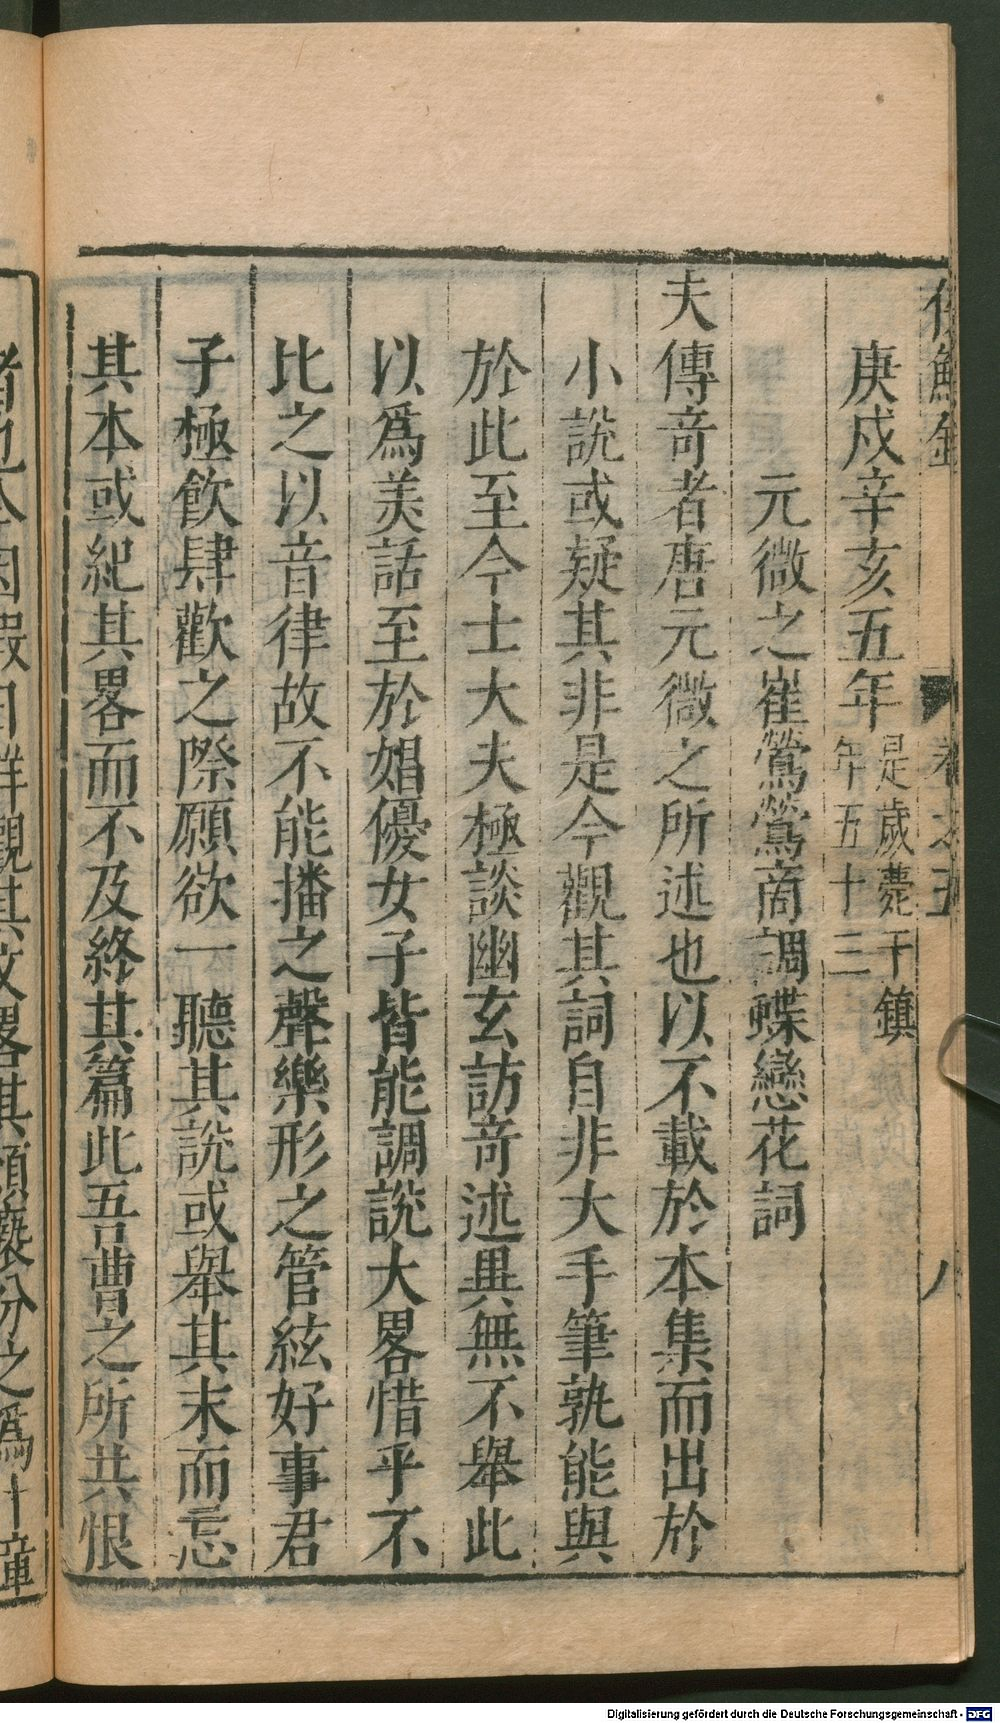 侯鯖錄 卷之五 八
庚戍辛亥五年是歲薨于鎮年五十三
元微之崔鶯鶯商調蝶戀花詞
夫傳奇者唐元微之所述也以不載於本集而出於
小說或疑其非是今觀其詞自非大手筆孰能與
於此至今士大夫極談幽玄訪奇述異無不舉此
以爲美話至於娼優女子皆能調說大畧惜乎不
比之以音律故不能播之聲樂形之管絃好事君
子極飲肆歡之際願欲一聽其說或舉其末而忘
其本或紀其畧而不及終其篇此吾曹之所共恨
者也今因暇日詳觀其文畧其煩褻分之爲十章
Digitalisierung gefördert durch die Deutsche Forschungsgemeinschaft - DFG